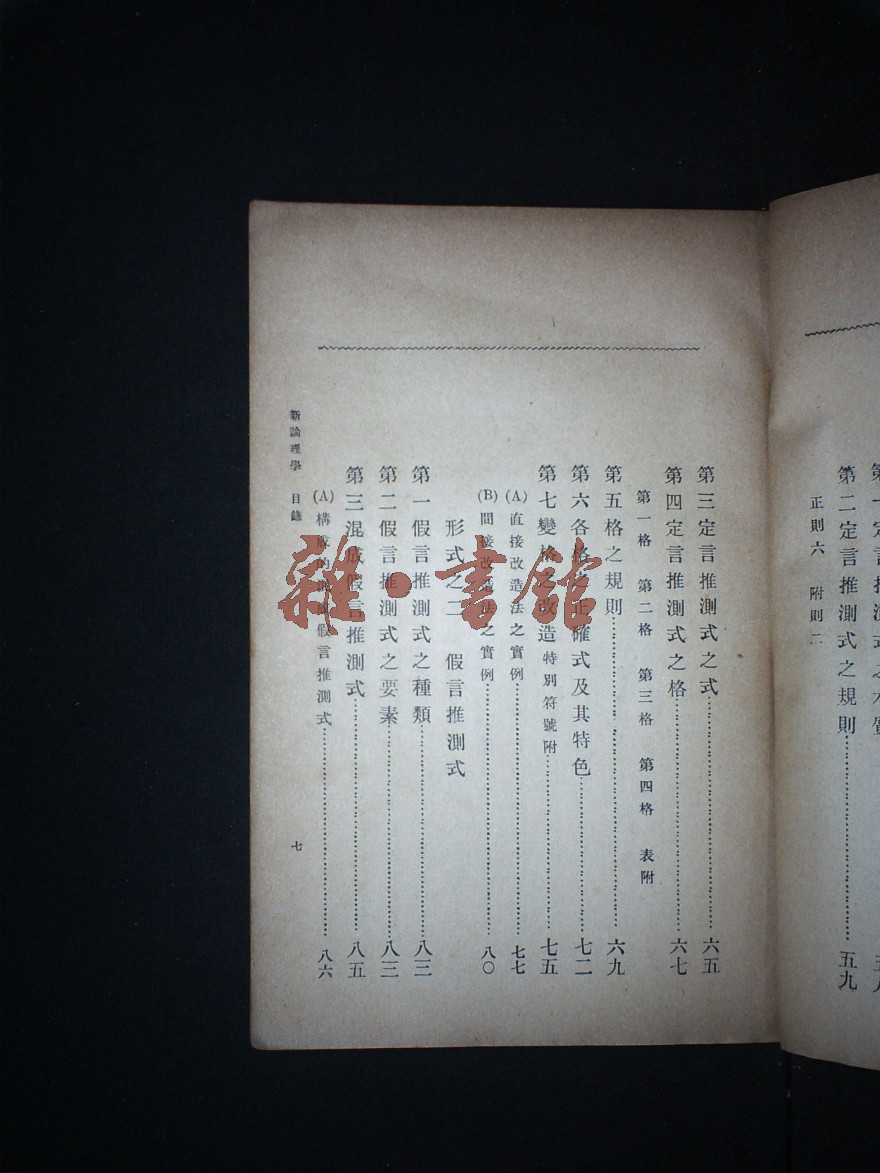 第二定言推測式之規則……五九
正則六 附則二
第三定言推測式之式……六五
第四定言推測式之格……六七
第一格 第二格 第三格 第四格 表附
第五格之規則……六九
第六各格之正確式及其特色……七二
第七變格之改造 特別符號附……七五
(A)直接改造法之實例……七七
(B)間接改造法之實例……八〇
形式之二 假言推測式
第一假言推測式之種類……八三
第二假言推測式之要素……八三
第三混成假言推測式……八五
(A)構成的混成假言推測式……八六
新論理學 目錄 七
雜·書館